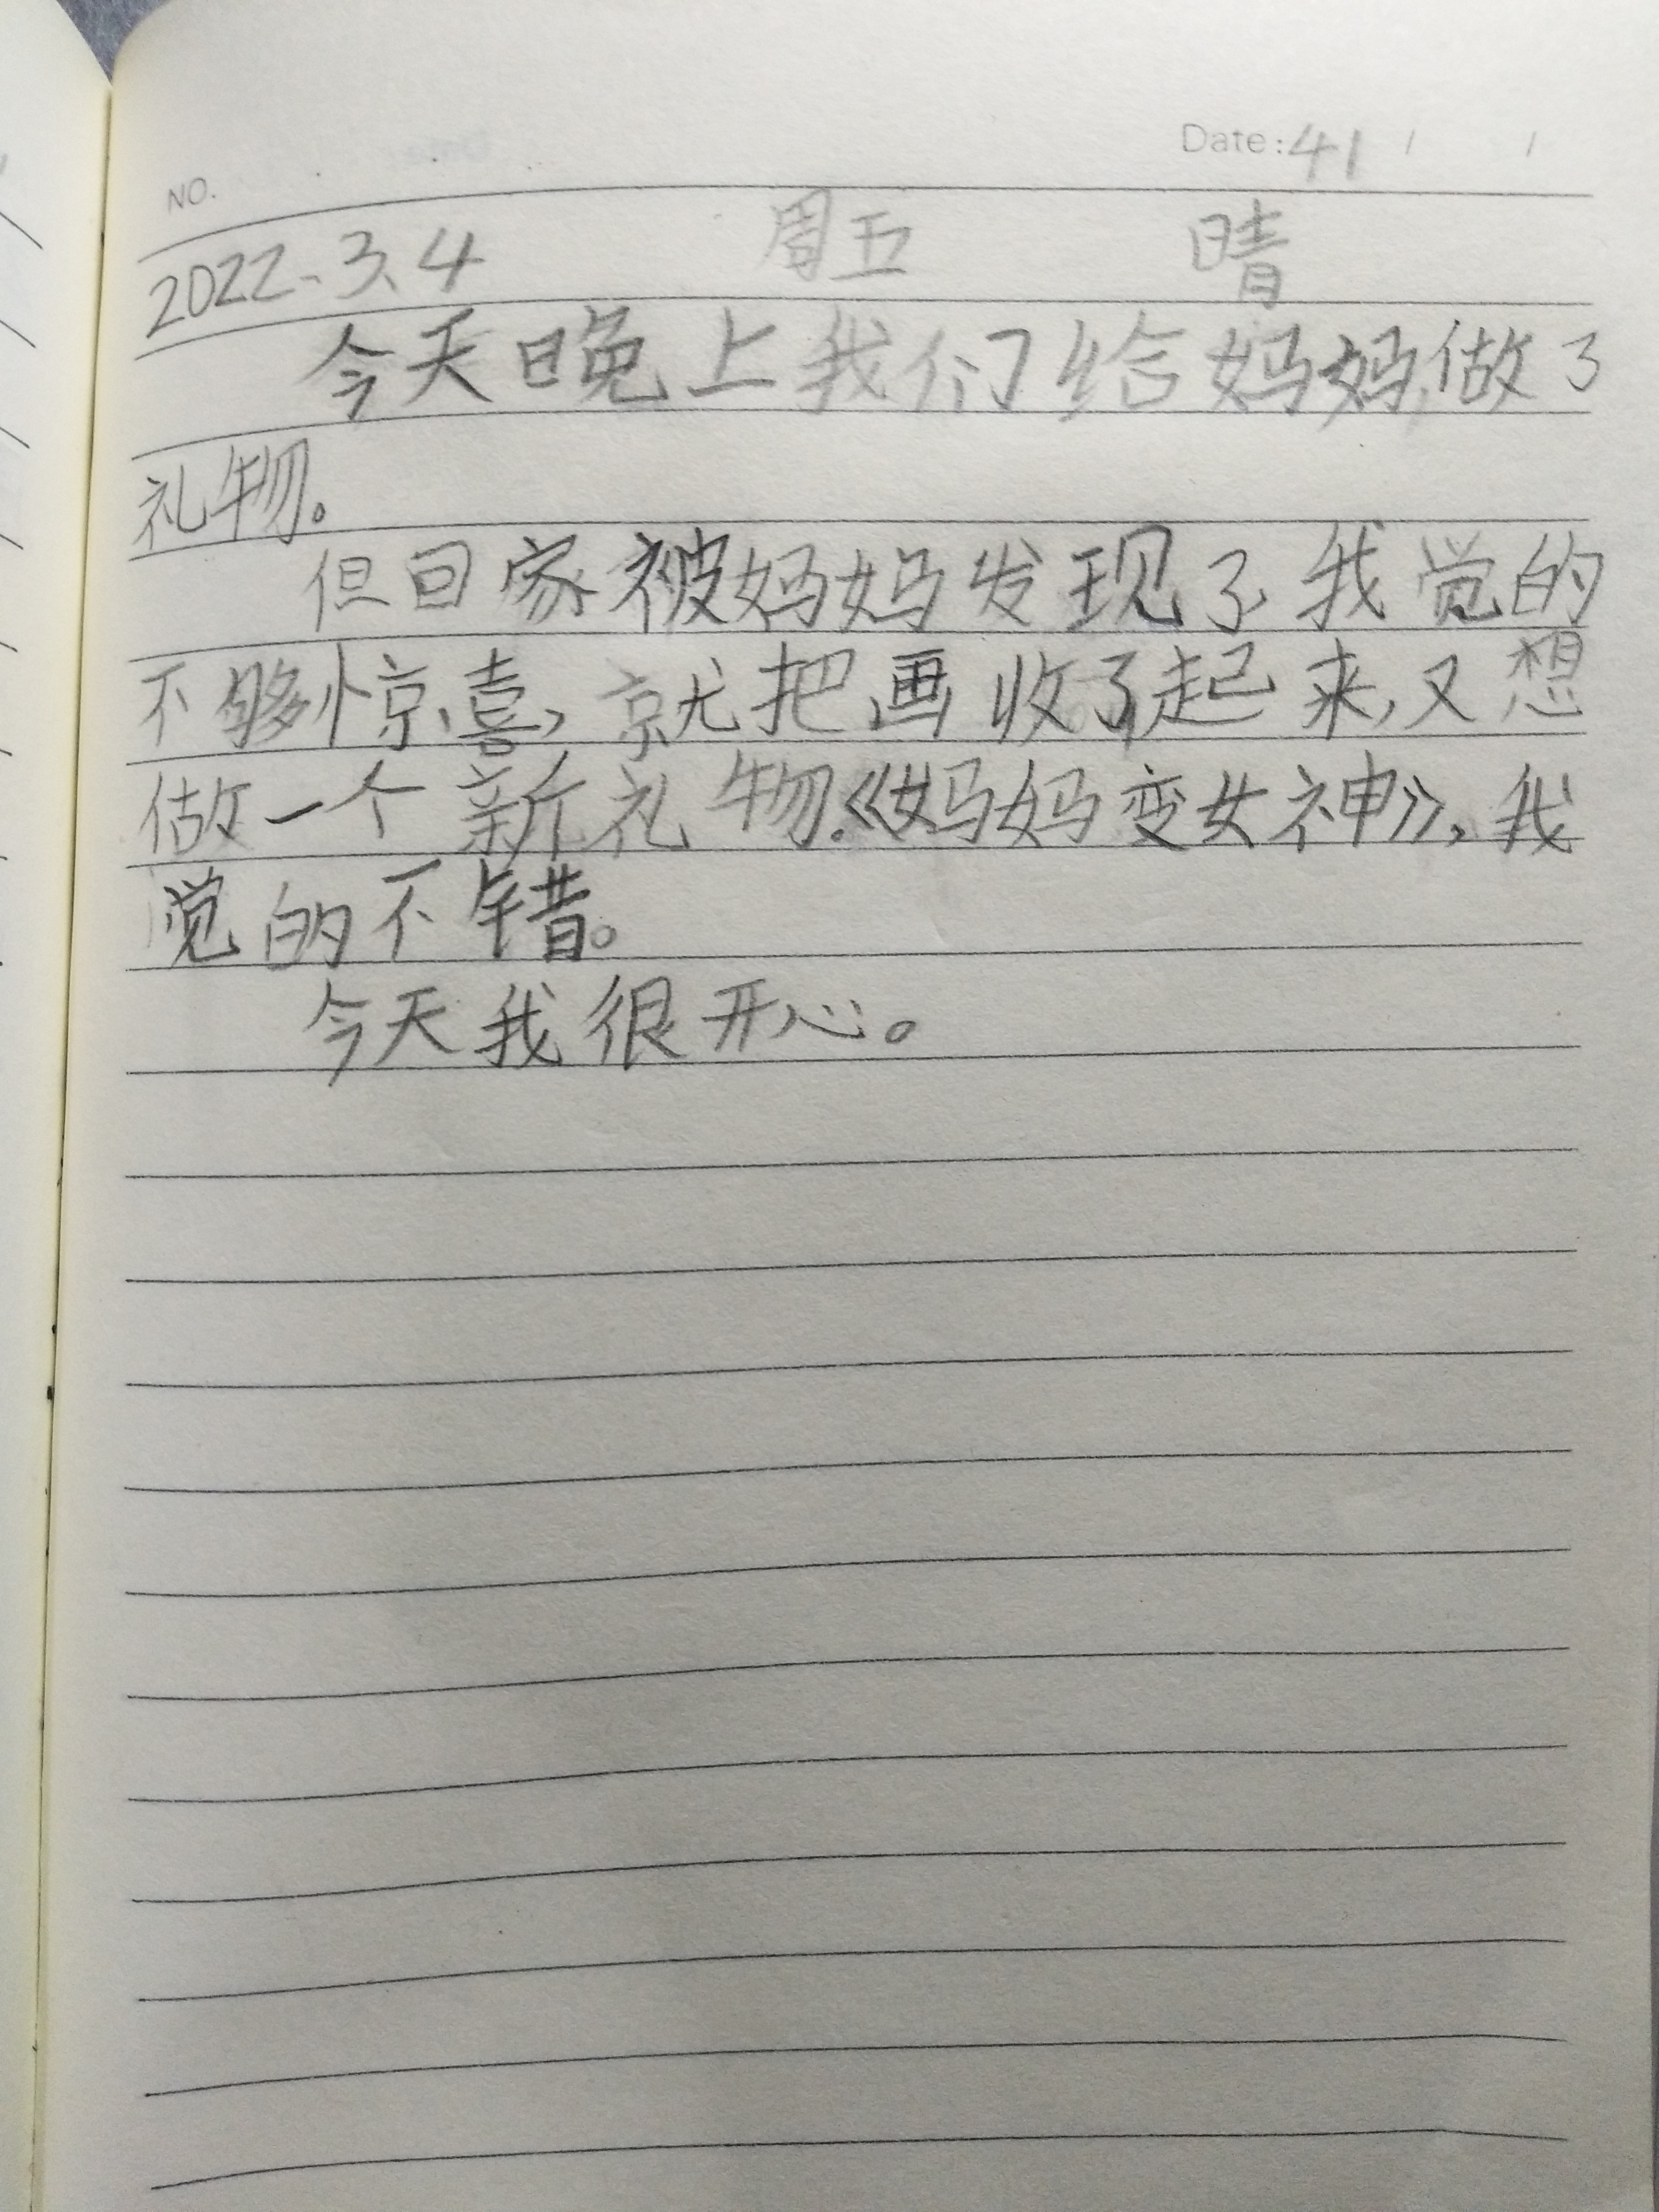 Date: 41 / /
NO.
2022.3.4 周五 晴
今天晚上我们给妈妈做了
礼物。
但回家被妈妈发现了我觉的
不够惊喜,就把画收了起来,又想
做一个新礼物.《妈妈变女神》,我
觉的不错。
今天我很开心。